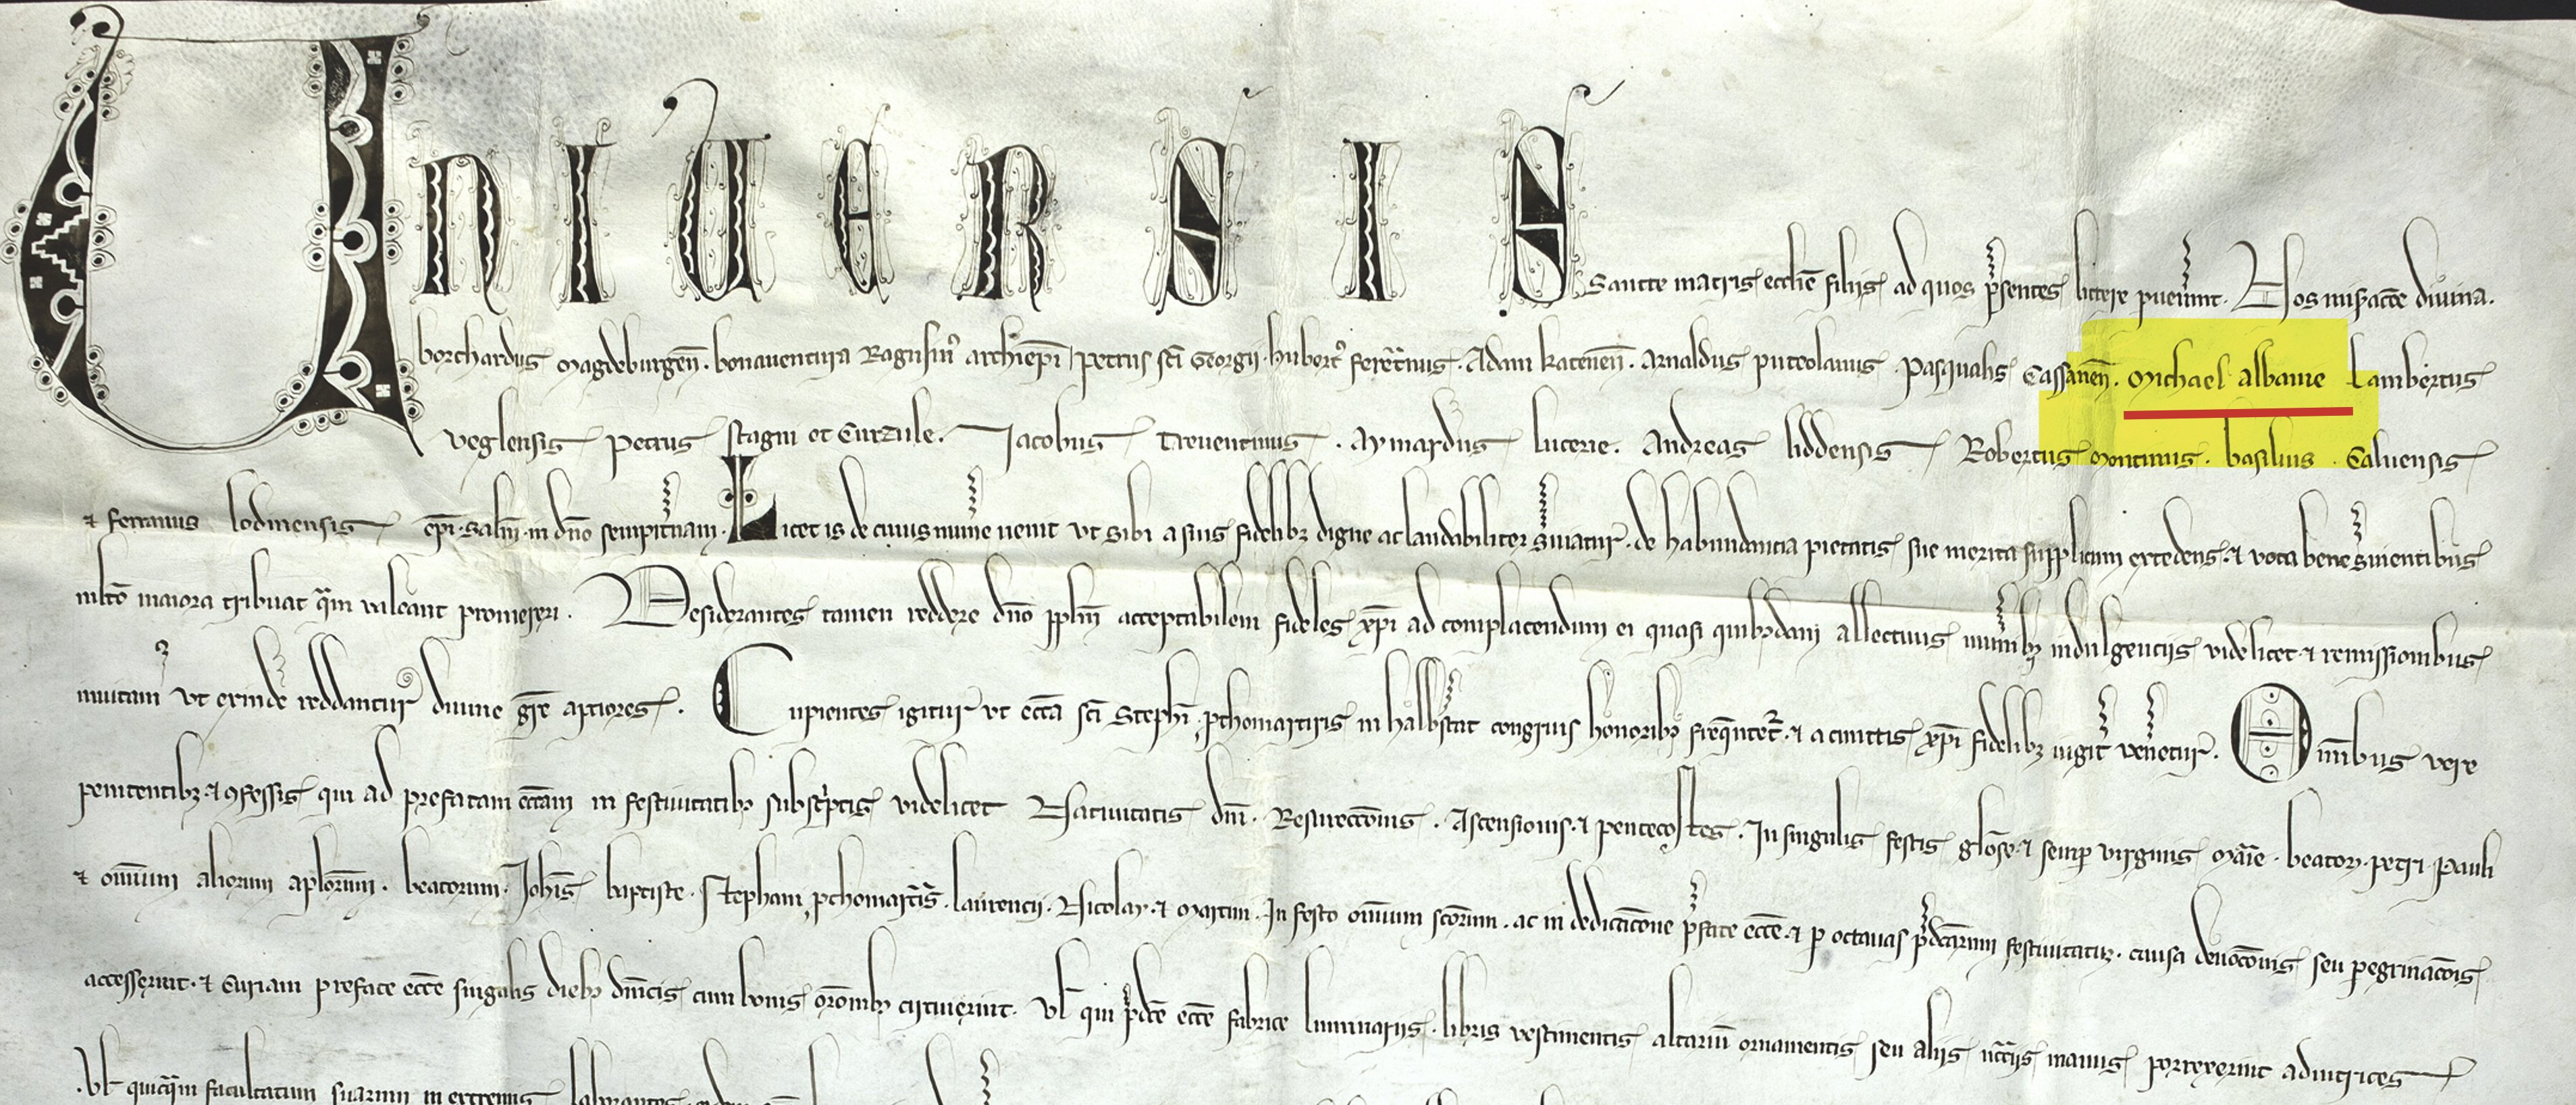 UNIUERSIS Sancte matris ecclie filiis ad quos psentes littere puenint. Nos misacõe diuina.
borchardus Magdeburgeñ. bonauentura Ragusinꝰ archiepi petrus sci Georgii. hubertꝰ feretnus. Adam kateneñ. Arnaldus puteolanus. Pasqualis Cassaneñ. Michael albanie Lambertus
veglensis petrus stagni et Curzule. Jacobus treuentinus. Aymardus lucerie. Andreas liddensis Robertus montinus. basilius. Caluensis
⁊ ferranus lodinensis epi. salm. in dño sempitnam. Licet is de cuius mune uenit vt sibi a suis fidelibꝫ digne ac laudabiliter suiatur. de habundantia pietatis sue merita supplicum excedens. ⁊ vota bene suientibus
mlto maiora tribuat qm valeant promereri. Desiderantes tamen reddere dño pplm acceptabilem fideles xpi ad complacendum ei quasi quibꝫdam allectiuis munibꝫ indulgentiis videlicet ⁊ remissionibus
inuitamꝰ vt exinde reddanturꝰ diuine gre aptiores. Cupientes igitur vt ecca sci Stephi pthomartiris in halbstat congruis honoribꝫ frequntetꝰ ⁊ a cunctis xpi fidelibꝫ iugitꝰ venetur. Omnibus vere
penitentibꝫ ⁊ ꝯfessis qui ad prefatam eccam in festiuitatibꝫ subscptis videlicet Natiuitatis dni. Resurecconis. Ascensionis. ⁊ pentecostes. In singulis festis glose ⁊ semp virginis Marie. beatoꝝ. petri. Pauli
⁊ omnium aliorum aplorum. beatorum. Johis baptiste. Stephani pthomartis. laurencii. Nicolay. ⁊ Martini. In festo omnium scorum. ac in dedicacone psate ecce. ⁊ p octauas pdcarum festiuitatuꝫ. causa deuocõnis seu pegrinacois
accesserint. ⁊ Curiam prefate ecce singulis diebꝫ dnicis cum bonis oronibꝫ circuierint. vl qui pdce ecce fabrice luminariis. libris vestimentis altariu ornamentis seu aliis ncciis manus porrexerint adiutrices
.vl quicqm facultatum suarum in extremis laborantes